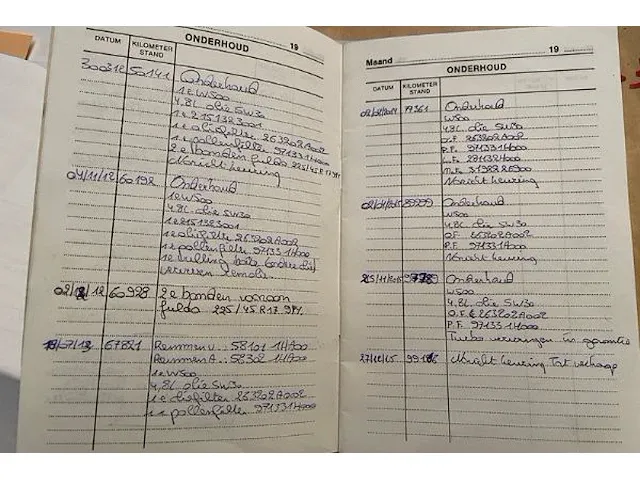 DATUM KILOMETER STAND ONDERHOUD 19
300312 50141 Onderhoud
1e W500
4,8L olie 5W30
1e 2151323001
1e oliefilter 263202A002
1e pollenfilter 971331H000
2e banden fulda 225/45R17 91Y
Nricht keuring
04/11/12 60192 Onderhoud
1e W500
4,8L olie 5W30
1e 2151323001
1e oliefilter 263202A002
1e pollenfilter 971331H000
1e vulling
remolie
02/12/12 60928 2e banden vooraan
fulda 225/45R17 91Y
18/07/13 67821 Remmen V.: 58101 1HA00
Remmen A.: 58302 1HA00
1e W500
4,8L olie 5W30
1e oliefilter 263202A002
1e pollenfilter 971331H000
Maand 19
DATUM KILOMETER STAND ONDERHOUD
02/02/2014 77361 Onderhoud
W500
4,8L olie 5W30
O.F. 263202A002
P.F. 971331H000
L.F. 281132H000
M.F. 319222B900
Nricht keuring
Onderhoud
W500
4,8L olie 5W30
O.F. 263202A002
P.F. 971331H000
Nricht keuring
Onderhoud
W500
4,8L olie 5W30
O.F. 263202A002
P.F. 971331H000
Turbo vervangen in garantie
Nricht keuring Tot verkoop